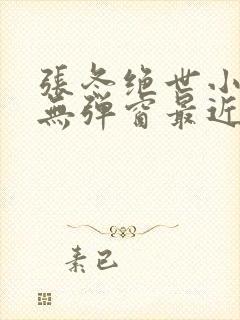 張冬绝世小
無弹窗最近
素已